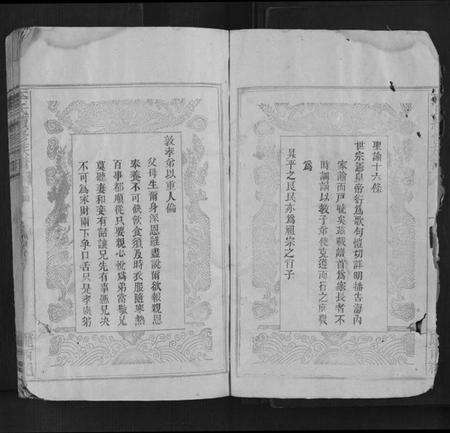 聖諭十六條
世宗憲皇帝衍為歌句愷切詳明播告海內
家諭而戶曉矣恭載譜首為家長者不
時誦讀以教子弟使克遵而行之庶幾
為
昇平之良民亦為祖宗之肖子
敦孝弟以重人倫
父母生爾身深恩誰盡說爾欲報親恩
奉養不可缺飲食須及時衣服隨寒熱
百事都順從只要親心悅為弟當敬兄
莫聽妻和妾有話讓兄先有事憑兄決
不可為家財兩下爭口舌只是孝與弟